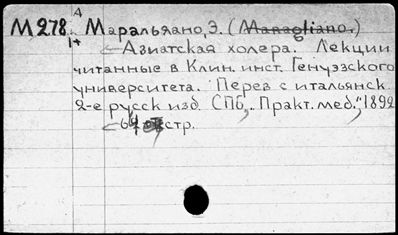 М 278. Маральяно, Э. (Maragliano.)
Азиатская холера. Лекции
читанные в Клин. инст. Генуэзского
университета. Перев с итальянск
2-е русск изд. СПб, "Практ. мед.", 1892
стр.